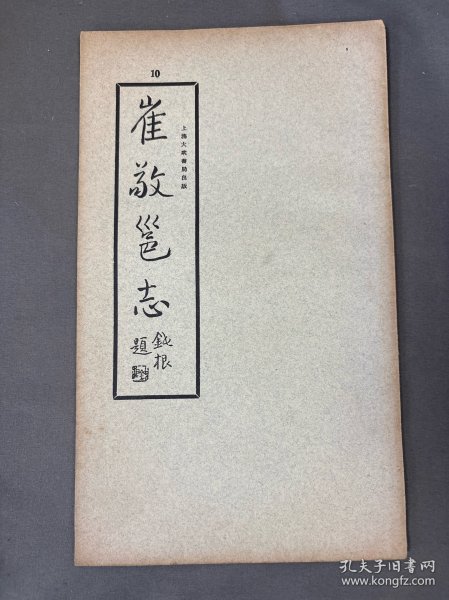 10
上海大眾書局出版
崔敬邕志
鐵根
題
孔夫子旧书网
www.kongfz.com